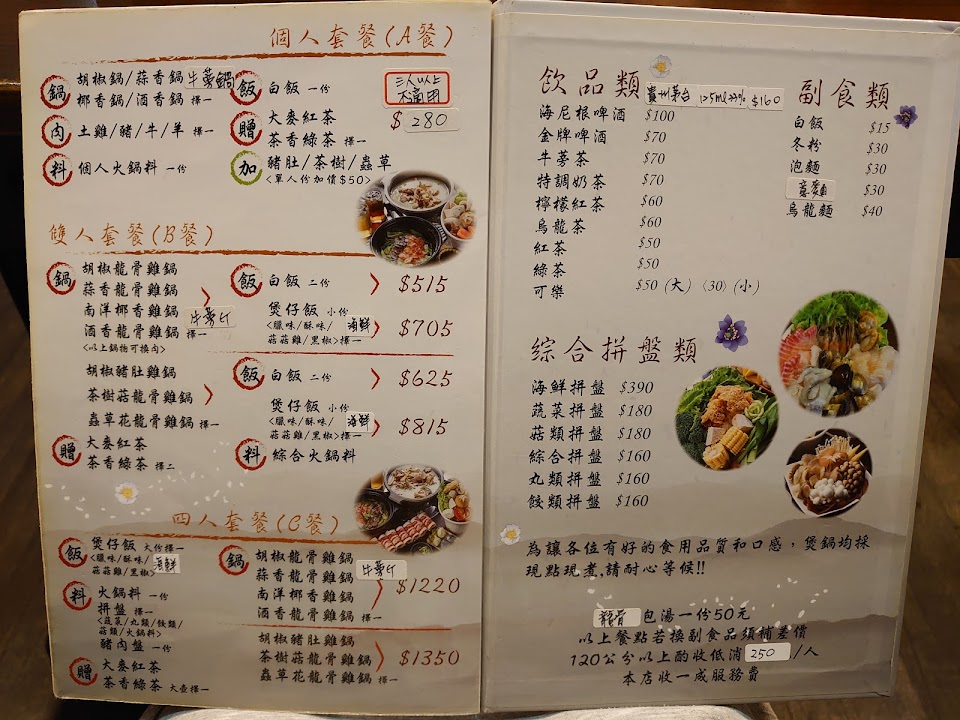 個人套餐(A餐)
鍋 胡椒鍋/蒜香鍋 牛蒡鍋
椰香鍋/酒香鍋 擇一
肉 土雞/豬/牛/羊 擇一
料 個人火鍋料 一份
飯 白飯 一份
三人以上
不適用
贈 大麥紅茶
茶香綠茶 擇一
$ 280
加 豬肚/茶樹/蟲草
<單人份加價$50>
雙人套餐(B餐)
鍋 胡椒龍骨雞鍋
蒜香龍骨雞鍋
南洋椰香雞鍋
酒香龍骨雞鍋 擇一
<以上鍋物可換肉>
飯 白飯 二份 $515
煲仔飯 小份
<臘味/酥味/ 海鮮
菇菇雞/黑椒>擇一
$705
胡椒豬肚雞鍋
茶樹菇龍骨雞鍋
蟲草花龍骨雞鍋 擇一
飯 白飯 二份 $625
煲仔飯 小份
<臘味/酥味/ 海鮮
菇菇雞/黑椒>擇一
$815
贈 大麥紅茶
茶香綠茶 擇二
料 綜合火鍋料
四人套餐(C餐)
飯 煲仔飯 大份擇一
<臘味/酥味/ 海鮮
菇菇雞/黑椒>
料 火鍋料 一份
拼盤 擇一
<蔬菜/丸類/餃類/
菇類/火鍋料>
豬肉盤 一份
贈 大麥紅茶
茶香綠茶 大壺擇一
鍋 胡椒龍骨雞鍋
蒜香龍骨雞鍋
南洋椰香雞鍋
酒香龍骨雞鍋
$1220
胡椒豬肚雞鍋
茶樹菇龍骨雞鍋
蟲草花龍骨雞鍋
$1350
飲品類
貴州茅台 125ml $160
海尼根啤酒 $100
金牌啤酒 $70
牛蒡茶 $70
特調奶茶 $70
檸檬紅茶 $60
烏龍茶 $60
紅茶 $50
綠茶 $50
可樂 $50 (大) (30) (小)
副食類
白飯 $15
冬粉 $30
泡麵 $30
意麵 $30
烏龍麵 $40
綜合拼盤類
海鮮拼盤 $390
蔬菜拼盤 $180
菇類拼盤 $180
綜合拼盤 $160
丸類拼盤 $160
餃類拼盤 $160
為讓各位有好的食用品質和口感，煲鍋均採
現點現煮,請耐心等候!!
龍骨 包湯一份50元
以上餐點若換副食品須補差價
120公分以上酌收低消 250 /人
本店收一成服務費